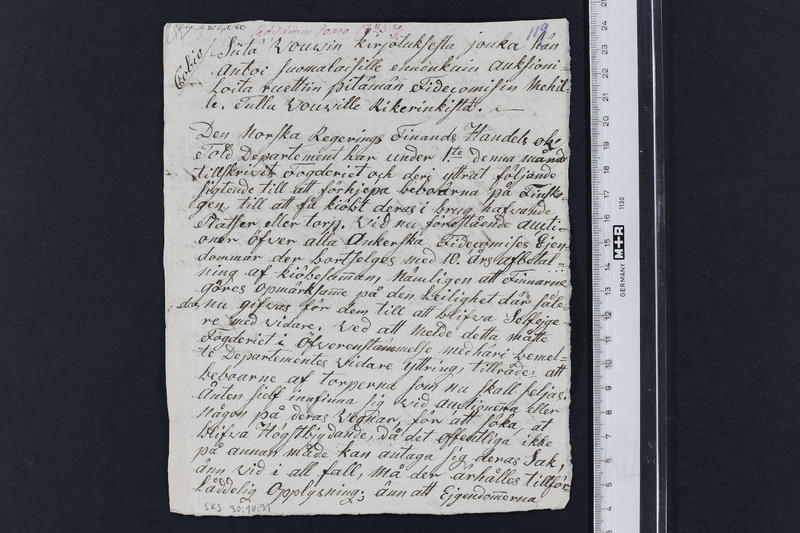 119
Siitä Vouwin kirjotuksesta jonka hän
Antoi Suomalaisille ennenkuin auksioni-
loita ruettiin pitämän Fidecomisin Mehil-
le. Tullu Vouville Kikerinkistä.
Copia
Den Norska Regerings Finands Handels ok
Told Departement har under 1ste denna månad
tillskrivit Fogderiet och deri yttrat följande
sigtende till att förhjepa beboarna på Finsko-
gen, till att få kiöbt deras i brug hafvande
Platser eller torp. Vid nu förestående aucti-
oner öfver alla Ankerska Fidecomises Ejen-
dommar der bortselges med 10. års afbetal-
ning af kiöbesumman, Nämligen att Finnarne
göres opmärksame på den Leilighet där såle-
des nu gifvas för dem till att blifva Selfejge-
re med vidare. Ved att melde detta måtte
Fogderiet i öfverenstämmelse med hari bemel-
te Departementes Vidare yttring, tillråde: att
beboarne af torperna som nu skall seljas,
Anten sielf innfinna sig vid auctionera eller
Någon på deras Vegnar, för att söka, at
blifva Högstbjudande, då det offentliga ikke
på annan måde kan antaga sig deras Sak,
änn vid i all fall, må der ärhålles tillför-
låddelig Opplysning; änn att Ejgendomerna
SKS 30:10:31
GERMANY
M+R
1130